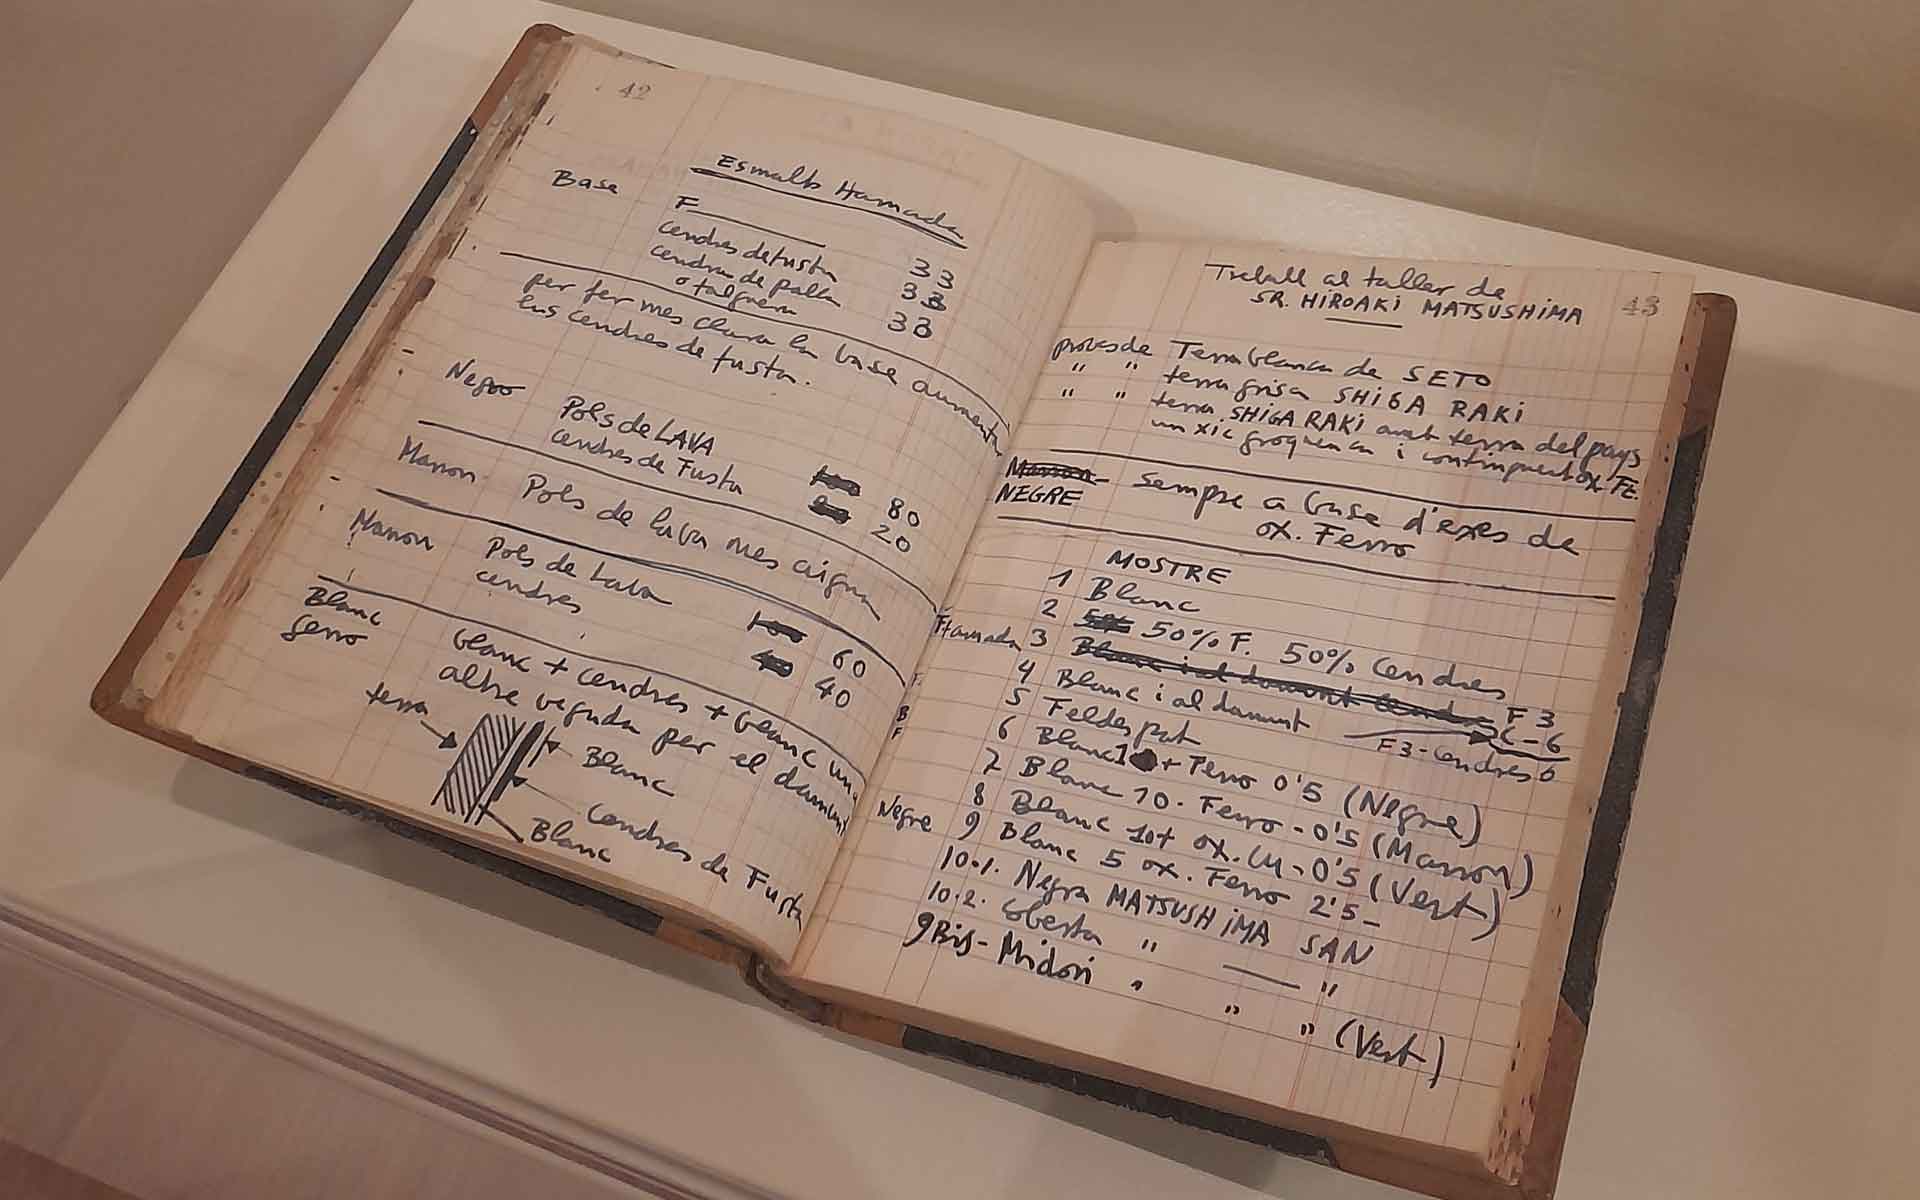 42
Esmalts Hamada
Base
F
cendres de fusta 33
cendres de palla 33
o talguera 33
per fer mes clara la base aumentar
lus cendres de fusta.
Negro
Pols de LAVA 80
cendres de Fusta 20
Marron Pols de lava mes aigua
Marron Pols de lava 60
cendres 40
Blanc
ferro
blanc + cendres + blanc una
altre veguda per el damunt
terra
Blanc
Cendres de Fusta
Blanc
43
Treball al taller de
SR. HIROAKI MATSUSHIMA
proves de Terra blanca de SETO
" " terra grisa SHIGA RAKI
" " terra SHIGA RAKI amb terra del pays
un xic groguenca i continguent ox. Fe.
Marron
NEGRE
sempre a base d'exes de
ox. Ferro
MOSTRE
1 Blanc
2 50% F. 50% Cendres
Hamada 3 Blanc i al damunt cendres F 3
C - 6
4 Blanc i al damunt F 3 - Cendres 6
5 Feldespat
6 Blanc 1 + Ferro 0'5 (Negre)
7 Blanc 10. Ferro - 0'5 (Marron)
8 Blanc 10+ ox. Cu - 0'5 (Vert)
Negre 9 Blanc 5 ox. Ferro 2'5 -
10.1. Negra MATSUSHIMA SAN
10.2. Coberta " "
9 Bis - Midori " " " (Vert)